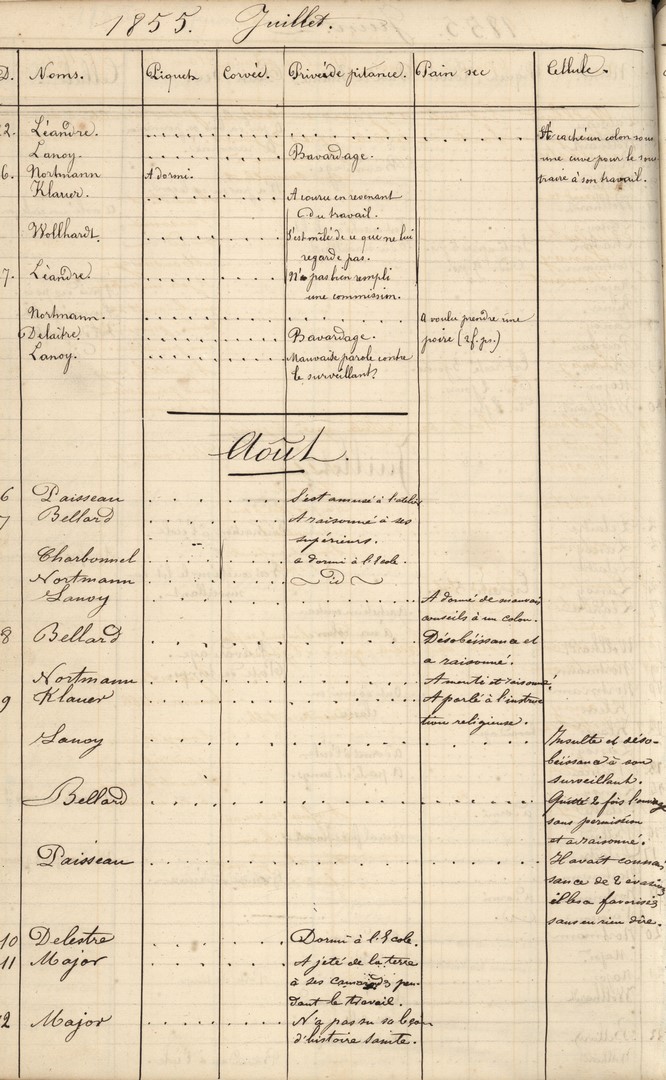 1855. Juillet.
D. Noms. Piquet Corvée. Privé de pitance. Pain sec Cellule.
2. Léandre. A caché un colon sous
Lanoy. Bavardage. une cuve pour le sous
6. Nortmann A dormi. traire à son travail.
Klauer. A couru en revenant
du travail.
Wollhardt. S'est mêlé de ce qui ne lui
regarde pas.
7. Léandre. N'a pas bien rempli
une commission.
Nortmann. A voulu prendre une
Delaître. Bavardage. poire (2f. ps.)
Lanoy. Mauvaise parole contre
le surveillant.
Août.
6 Paisseau S'est amusé à l'atelier
7 Bellard A raisonné à ses
supérieurs.
Charbonnel a dormi à l'Ecole.
Nortmann id
Lanoy A donné de mauvais
conseils à un colon.
8 Bellard Désobéissance et
a raisonné.
Nortmann A menti et raisonné.
9 Klauer A parlé à l'instruc
tion religieuse.
Lanoy Insulte et déso-
béissance à son
surveillant.
Bellard Quitté 2 fois l'ouvrage
sans permission
et a raisonné.
Paisseau Il avait connais
sance de 2 évasions
et les a favorisés
sans en rien dire.
10 Delestre Dormi à l'Ecole.
11 Major A jeté de la terre
à ses camarades pen-
dant le travail.
12 Major N'a pas su sa leçon
d'histoire sainte.